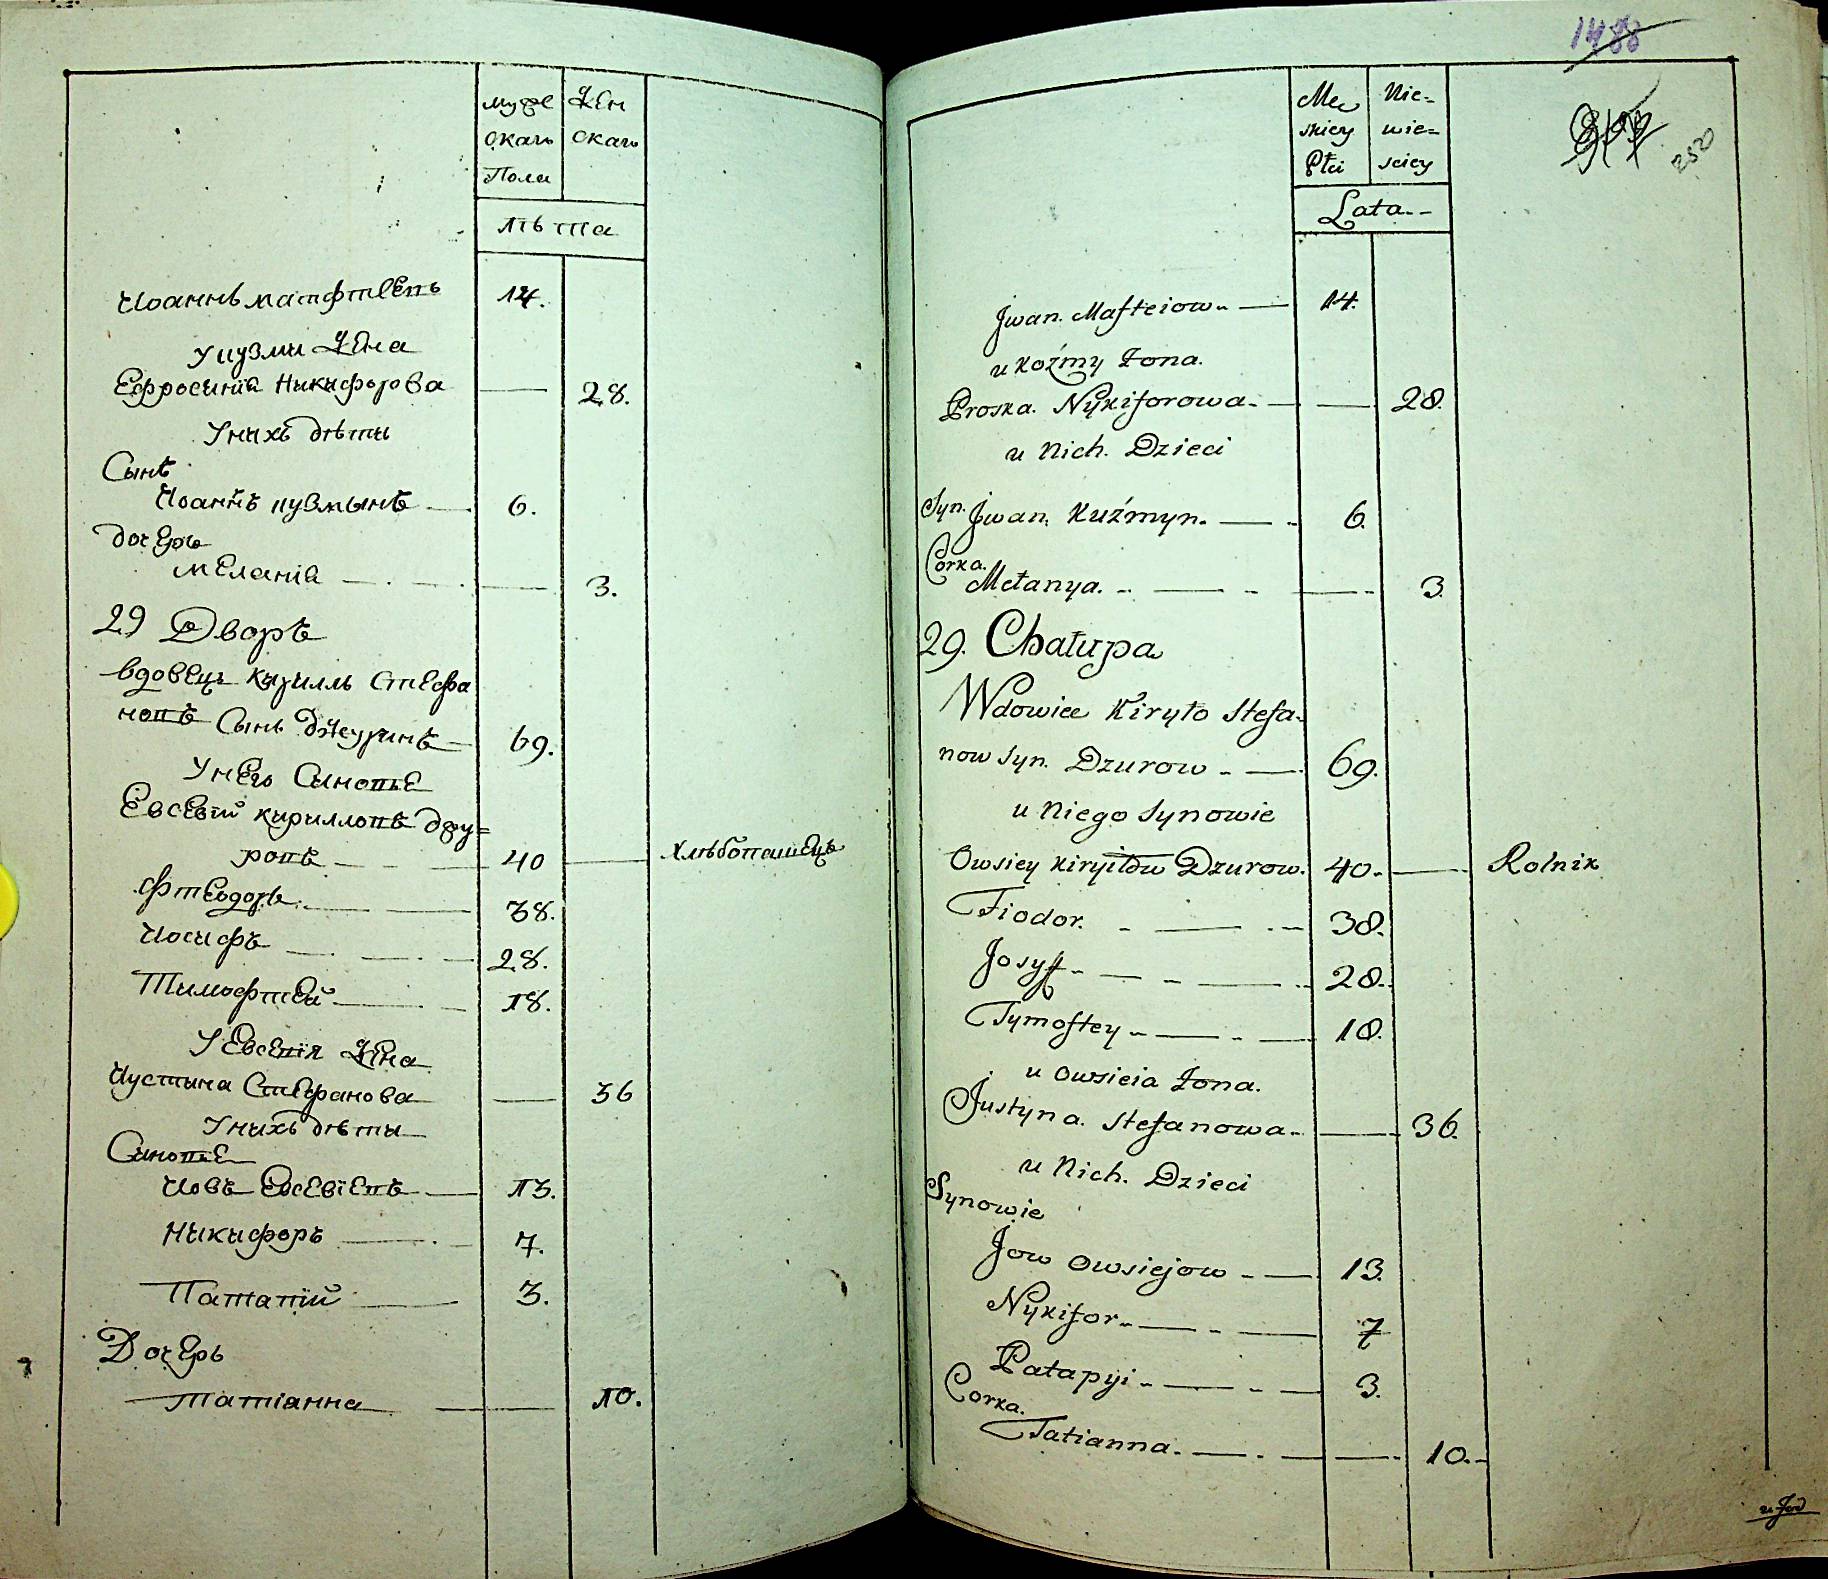 муже
скаго
Пола
Жен
скаго
лѣта
Иоаннъ матфтѣевъ 14.
У кузми Жена
Ефросиния Никифорова 28.
У нихъ дѣти
Сынъ
Иоаннъ кузмынъ 6.
дочерь
меланія 3.
29 Дворъ
вдовецъ кириллъ Стефа
новъ Сынъ Джуринъ 69.
У него Синове
Евсевій кирилловъ Джу=
ровъ 40 хлѣбопашецъ
Фтеодоръ 38.
Иосифъ 28.
Тимофтей 18.
У Евсевія Жена
Иустина Стефанова 36
У нихъ дѣти
Синове
Иовъ Евсевіевъ 13.
Никифоръ 7.
Патапій 3.
Дочерь
татіанна 10.
1488
Me
skiey
Płci
Nie=
wie=
sciey
Lata
2520
Jwan. Mafteiow 14.
u Koźmy Żona.
Proska. Nykiforowa 28.
u Nich. Dzieci
Syn. Jwan. Kuźmyn. 6.
Corka.
Mełanya. 3.
29. Chałupa
Wdowiec Kiryło Stefa-
now syn. Dzurow 69.
u Niego Synowie
Owsiey Kiryiłow Dzurow. 40. Rolnik
Fiodor. 38.
Josyf 28.
Tymoftey 18.
u Owsieia Żona.
Justyna. Stefanowa 36.
u Nich. Dzieci
Synowie
Jow Owsiejow 13.
Nykifor 7
Patapyi 3.
Corka.
Tatianna. 10.